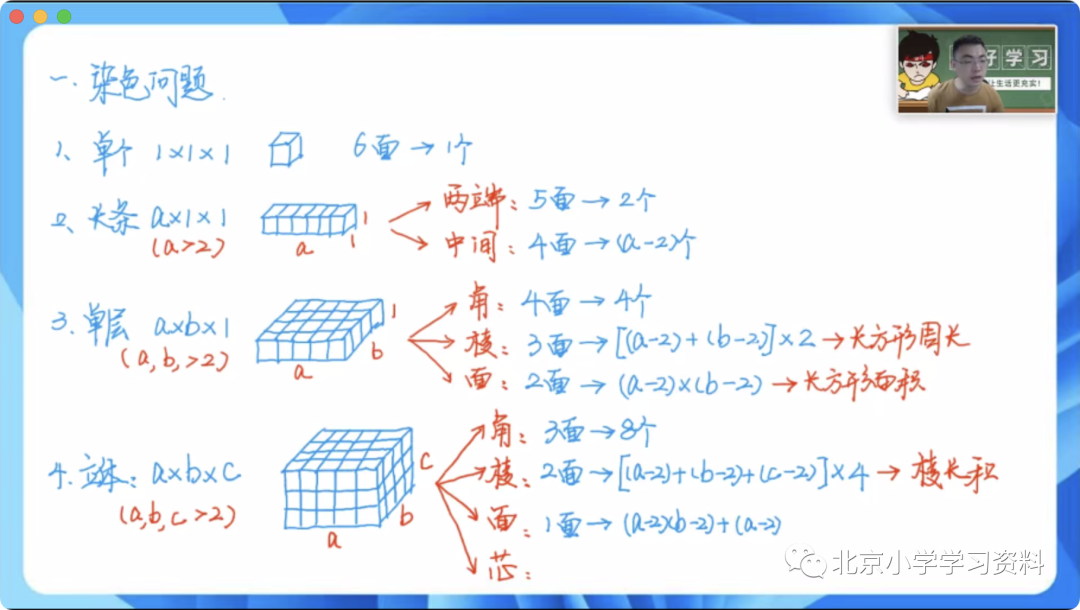 一. 染色问题.
好学习
让生活更充实!
1、单个 1×1×1 6面→1个
2、长条 a×1×1
(a>2)
a 1 1
两端: 5面→2个
中间: 4面→(a-2)个
3、单层 a×b×1
(a,b,>2)
a b 1
角: 4面→4个
棱: 3面→[(a-2)+(b-2)]×2→长方形周长
面: 2面→(a-2)×(b-2)→长方形面积
4. 立体: a×b×c
(a,b,c>2)
a b c
角: 3面→8个
棱: 2面→[(a-2)+(b-2)+(c-2)]×4→棱长积
面: 1面→(a-2)(b-2)+(a-2)
芯:
北京小学学习资料